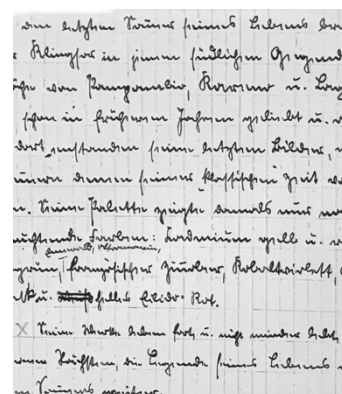 den letzten Sommer seines Lebens bra
Klingsor in jenen südlichen Gegend
ähe von Pampambio, Kareno u. Lag
schon in früheren Jahren geliebt u. o
dort entstanden seine letzten Bilder,
denen seiner klassischen Zeit
n. Seine Palette zeigte damals nur
uchtende Farben: Kadmium gelb u. r
grün, französischer Zinnober, Kobaltviolett,
u. helles Rot.
X Seine Werke leben fort u. nicht minder lebt
die Legende seines Lebens
n Sommers weiter.